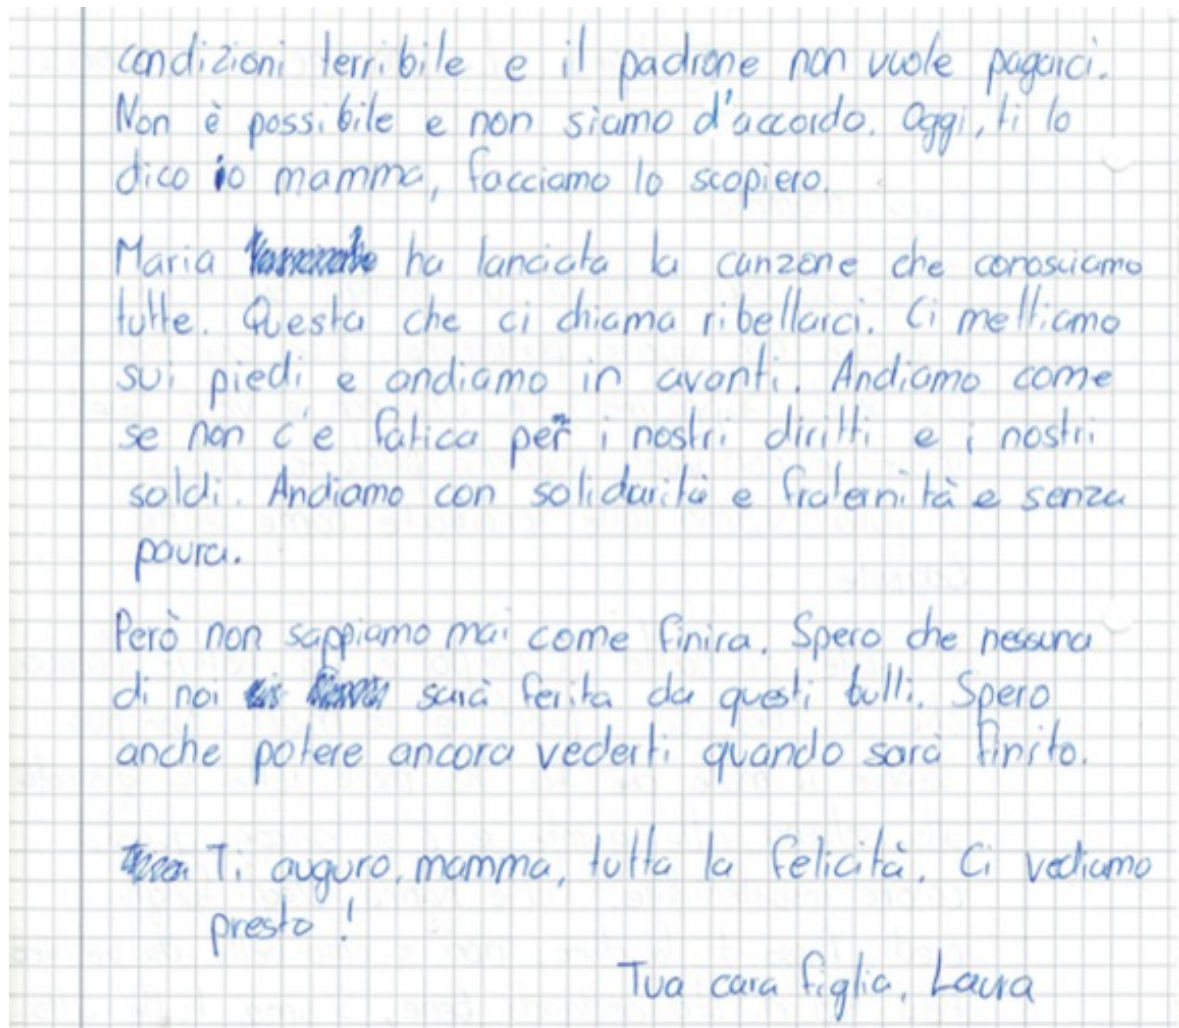 condizioni terribile e il padrone non vuole pagarci.
Non è possibile e non siamo d'accordo. Oggi, ti lo
dico io mamma, facciamo lo scopiero.
Maria ha lanciata la canzone che conosciamo
tutte. Questa che ci chiama ribellarci. Ci mettiamo
sui piedi e andiamo in avanti. Andiamo come
se non c'e fatica per i nostri diritti e i nostri
soldi. Andiamo con solidarità e fraternità e senza
paura.
Però non sappiamo mai come finira. Spero che nessuna
di noi sarà ferita da questi bulli. Spero
anche potere ancora vederti quando sarà finito.
Ti auguro, mamma, tutta la felicità. Ci vediamo
presto !
Tua cara figlia, Laura